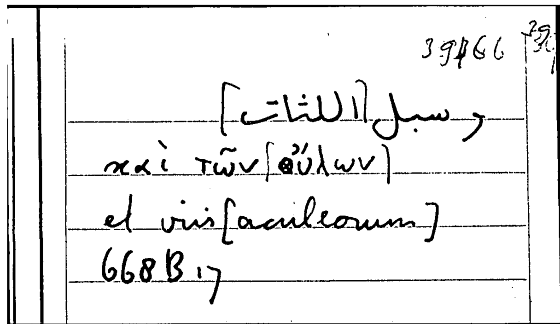 و سبل [اللثات]
καὶ τῶν [οὔλων]
et viis [aculeorum]
668B 17